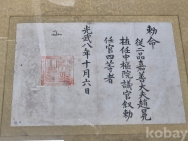 勅命
從二品嘉善大夫趙晃
植任中樞院議官敍勅
任官四等者
光武八年十月六日
kobay